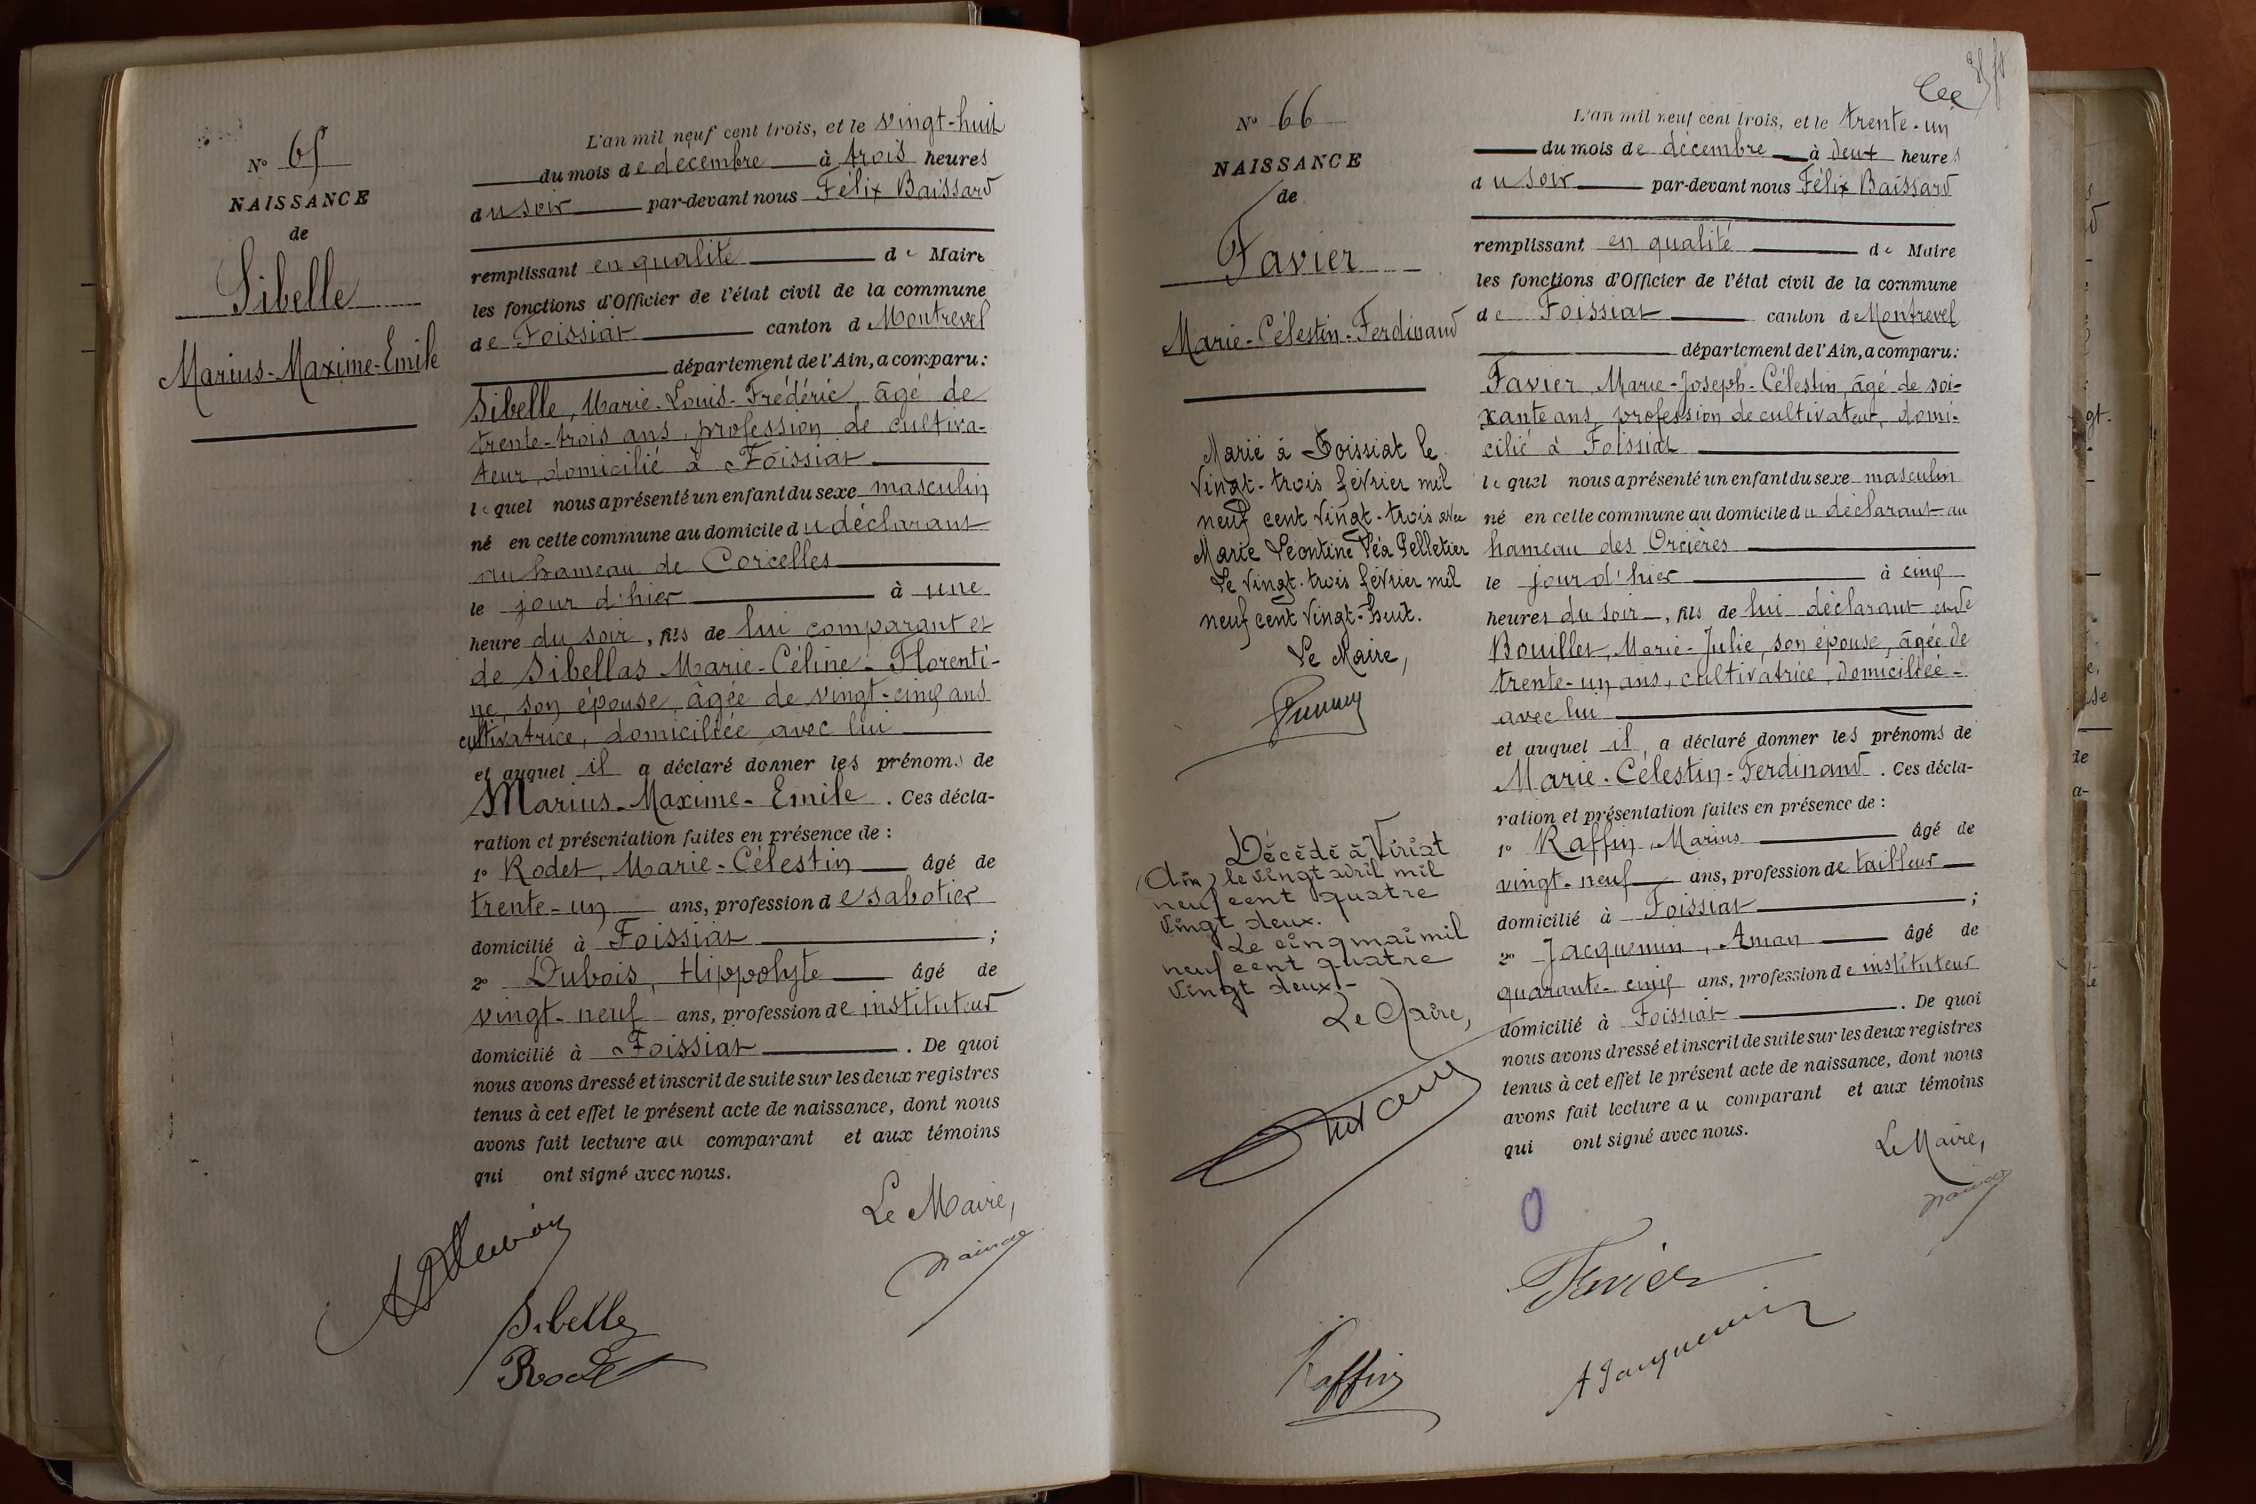 N° 65
NAISSANCE
de
Sibelle
Marius-Maxime-Emile
L'an mil neuf cent trois, et le vingt-huit
du mois de décembre à trois heures
du soir par-devant nous Félix Baissard
remplissant en qualité de Maire
les fonctions d'Officier de l'état civil de la commune
de Foissiat canton de Montrevel
département de l'Ain, a comparu:
Sibelle, Marie-Louis-Frédéric, âgé de
trente-trois ans, profession de cultiva-
teur, domicilié à Foissiat
lequel nous a présenté un enfant du sexe masculin
né en cette commune au domicile du déclarant
au hameau de Corcelles
le jour d'hier à une
heure du soir, fils de lui comparant et
de Sibellas Marie-Céline-Florenti-
ne, son épouse, âgée de vingt-cinq ans
cultivatrice, domiciliée avec lui
et auquel il a déclaré donner les prénoms de
Marius-Maxime-Emile. Ces décla-
ration et présentation faites en présence de:
1° Rodet, Marie-Célestin âgé de
trente-un ans, profession de sabotier
domicilié à Foissiat;
2° Dubois, Hippolyte âgé de
vingt-neuf ans, profession de instituteur
domicilié à Foissiat. De quoi
nous avons dressé et inscrit de suite sur les deux registres
tenus à cet effet le présent acte de naissance, dont nous
avons fait lecture au comparant et aux témoins
qui ont signé avec nous.
Le Maire,
Sibelle
Rodet
N° 66
NAISSANCE
de
Favier
Marie-Célestin-Ferdinand
Marié à Foissiat le
vingt-trois février mil
neuf cent vingt-trois avec
Marie Léontine Léa Pelletier
Le vingt-trois février mil
neuf cent vingt-huit.
Le Maire,
Décédé à Viriat
(Ain) le vingt avril mil
neuf cent quatre
vingt deux.
Le cinq mai mil
neuf cent quatre
vingt deux.-
Le Maire,
L'an mil neuf cent trois, et le trente-un
du mois de décembre à deux heures
du soir par-devant nous Félix Baissard
remplissant en qualité de Maire
les fonctions d'Officier de l'état civil de la commune
de Foissiat canton de Montrevel
département de l'Ain, a comparu:
Favier, Marie-Joseph-Célestin, âgé de soi-
xante ans, profession de cultivateur, domi-
cilié à Foissiat
lequel nous a présenté un enfant du sexe masculin
né en cette commune au domicile du déclarant au
hameau des Orcières
le jour d'hier à cinq
heures du soir, fils de lui déclarant et de
Bouillet, Marie-Julie, son épouse, âgée de
trente-un ans, cultivatrice, domiciliée-
avec lui
et auquel il, a déclaré donner les prénoms de
Marie-Célestin-Ferdinand. Ces décla-
ration et présentation faites en présence de:
1° Raffin, Marius âgé de
vingt-neuf ans, profession de tailleur
domicilié à Foissiat;
2° Jacquemin, Aman âgé de
quarante-cinq ans, profession de instituteur
domicilié à Foissiat. De quoi
nous avons dressé et inscrit de suite sur les deux registres
tenus à cet effet le présent acte de naissance, dont nous
avons fait lecture au comparant et aux témoins
qui ont signé avec nous.
Le Maire,
Favier
Raffin
A Jacquemin